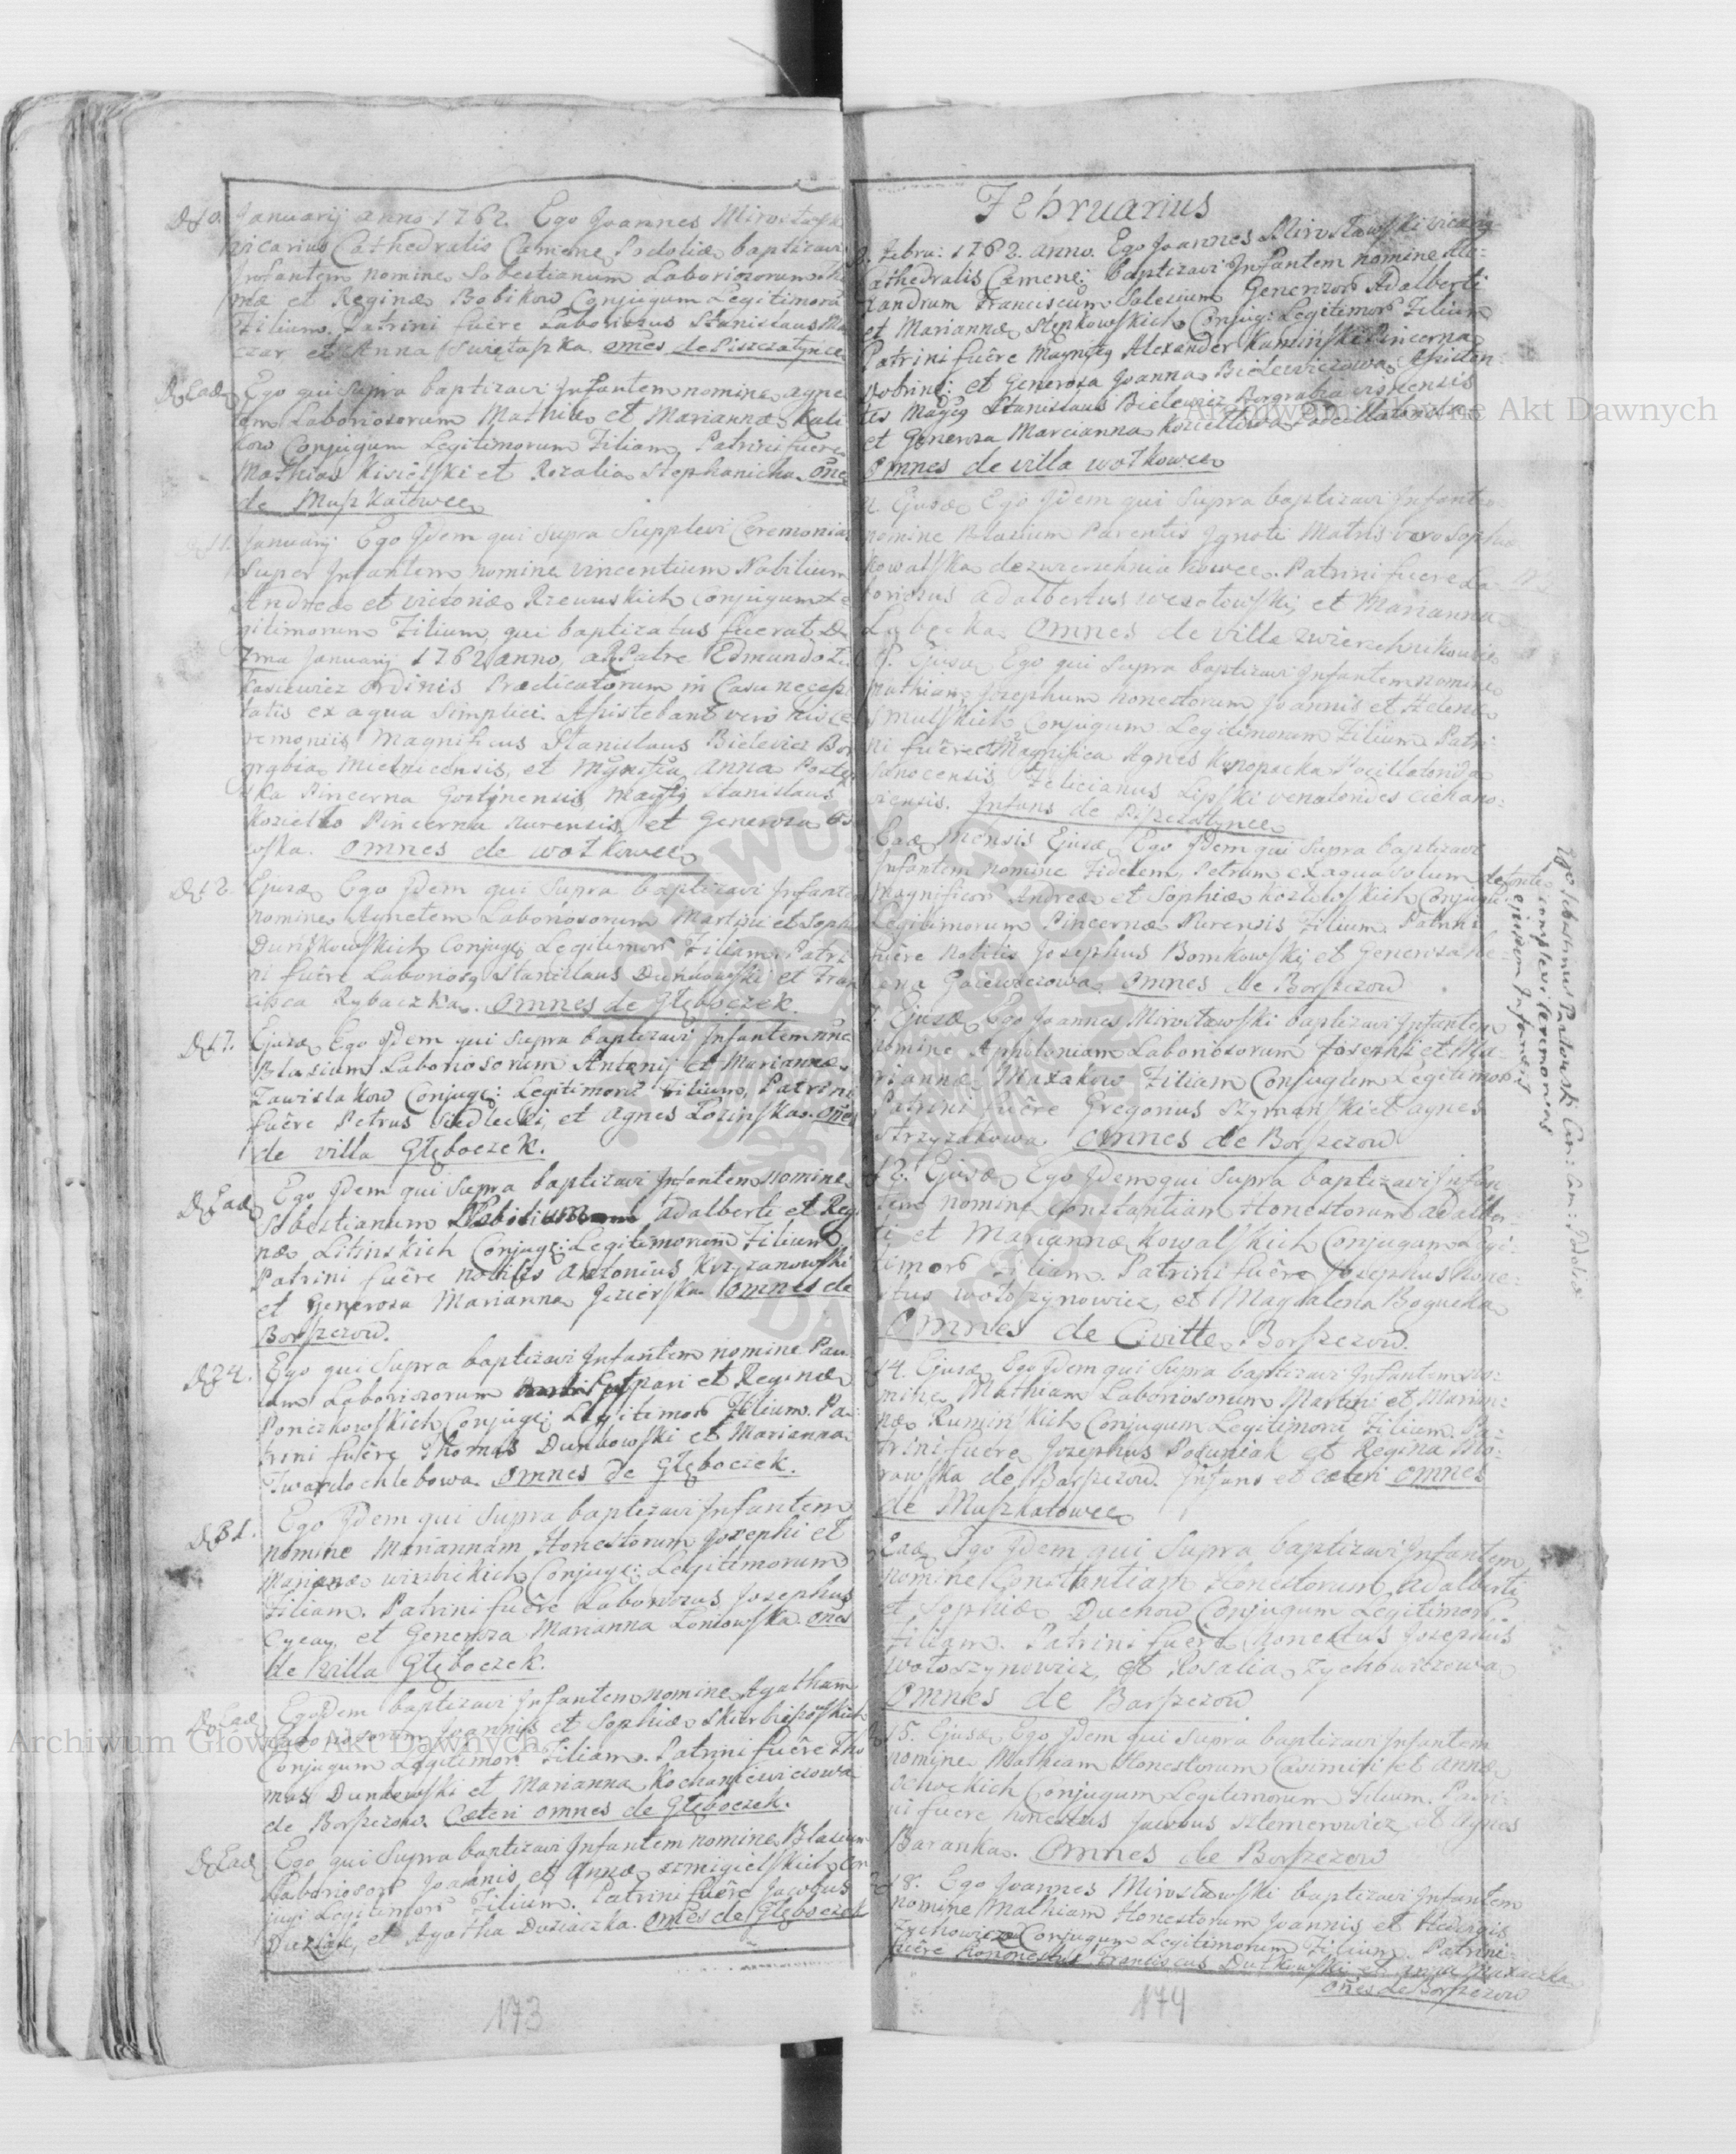 D. 10. Januarij anno 1762. Ego Joannes Mirosławski
Vicarius Cathedralis Camene: Podoliæ baptizavi
Infantem nomine Sobestianum Laboriosorum Tho
mæ et Reginæ Bobikow Conjugum Legitimorū
Filium. Patrini fuêre Laboriosus Stanislaus
et Anna omēs de Piszczatynce
D. Ead. Ego qui Supra baptizavi Infantem nomine Agne
tem Laboriosorum Mathiæ et Mariannæ Kali
kow Conjugum Legitimorum Filiam, Patrini fuere
Mathias Kisielski et Rozalia Stephanicha. Oñes
de Muszkatowce
D. 11. Januarij Ego Idem qui Supra Supplevi Ceremonias
Super Infantem nomine Vincentium Nobilium
Andreæ et Victoriæ Rzewuskich Conjugum Le
gitimorum Filium, qui baptizatus fuerat D.
7ma Januarij 1762 anno, a Patre Edmundo
Ordinis Prædicatorum in Casu necess
tatis ex aqua Simplici. Assistebant vero his Ce
remoniis Magnificus Stanislaus Bielewicz Bor
grabia Mielnicensis, et Anna
ska Pincerna Gostynensis Stanislaus
Koziełło Pincerna Nurensis, et Generosa
wska. Omnes de Wołkowce
D. 12. Ejusd Ego Idem qui Supra baptizavi Infantē
nomine Agnetem Laboriosorum Martini et Soph
Duńkowskich Conjugū Legitimorū Filiam. Patri
ni fuêre Laboriosq Stanislaus Dunkowski et Fran
cisca Rybaczka. Omnes de Głęboczek.
D. 17. Ejusd Ego Idem qui Supra baptizavi Infantem nñe
Blasium Laboriosorum Antonij et Mariannæ
Zawislakow Conjugū: Legitimorū Filium, Patrini
fuêre Petrus Siedlecki, et Agnes Łozinska. Oñes
de villa Głęboczek.
D. Ead. Ego Idem qui Supra baptizavi Infantem Nomine
Sobestianum Adalberti et Regi
næ Litinskich Conjugū: Legitimorum Filium
Patrini fuêre nobilis Antonius Krzyzanowski
et Generosa Marianna Jezierska Omnes de
Borszczow.
D. 24. Ego qui Supra baptizavi Infantem nomine Pau
lum Laboriosorum Gaspari et Reginæ
Ponczkowskich Conjugū: Legitimorū Filium. Pa
trini fuêre Thomas Dunkowski et Marianna
Twardochlebowa. Omnes de Głęboczek.
D. 31. Ego Idem qui Supra baptizavi Infantem
nomine Mariannam Honestorum Josephi et
Marianæ Wizbickich Conjugū: Legitimorum
Filiam. Patrini fuêre Laboriosus Josephus
et Generosa Marianna Łoniowska. Oñes
de Villa Głęboczek.
D. Ead. Ego Idem baptizavi Infantem nomine Agatham
Laboriosorum Joannis et Sophiæ
Conjugum Legitimorū Filiam. Patrini fuêre Tho
mas Dunkowski et Marianna Kochaniewiczowa
de Borszczow. Cæteri omnes de Głęboczek.
D. Ead. Ego qui Supra baptizavi Infantem nomine Blasium
Laboriosorū Joannis et Annæ Szmigielskich Con
jugū Legitimorū Filium. Patrini fuêre Jacobus
Duziak, et Agatha Duziaczka. Omēs de Głęboczek
173
Februarius
Febru: 1762. anno. Ego Joannes Mirosławski Vicariq
Cathedralis Camene: baptizavi Infantem nomine Ale:
xandrum Franciscum Salesium Generosorū Adalberti
et Mariannæ Stępkowskich Conjug: Legitimorū Filium
Patrini fuêre Magnifq Alexander Kaminski Pincerna
et Generosa Joanna Bielewiczowa, Assisten:
tes Stanislaus Bielewicz Borgrabia
et Generosa Marcianna Koziełłowa
Omnes de villa Wołkowce
Ejusd Ego Idem qui Supra baptizavi Infantē
nomine Blasium Parentis Ignoti Matris vero Sophiæ
Kowalska de Zwierzchniakowce. Patrini fuere La:
boriosus Adalbertus Wesołowski, et Marianna
Łabęcka. Omnes de villa Zwierzchnikowce
Ejusd Ego qui Supra baptizavi Infantem nomine
Mathiam Josephum Honestorum Joannis et Helenæ
Smulskich Conjugum Legitimorum Filium. Patri
ni fuêre Magnifica Agnes Konopacka
Sanocensis Felicianus Lipski venatorides Ciechano:
viensis. Infans de Piszczatynce
Ead. Mensis Ejusd Ego Idem qui Supra baptizavi
Infantem nomine Fidelem, Petrum ex aqua Solum
Magnificorū Andreæ et Sophiæ Kozłowskich Conjugū
Legitimorum Pincernæ Nurensis Filium. Patrini
fuêre Nobilis Josephus Bomkowski, et Generosa He:
lena Gaiewiczowa. Omnes de Borszczow
de fonte
Ego Sebastinus Pawłowski Can: Cam: Podoliæ
complevi Ceremonias
ejusdem Infantis
Ejusd Ego Joannes Mirosławski baptizavi Infantem
nomine Appoloniam Laboriosorum Josephi et Ma:
riannæ Mazakow Filiam Conjugum Legitimorū
Patrini fuêre Gregorius Szymanski et Agnes
Omnes de Borszczow
12. Ejusd Ego Idem qui Supra baptizavi Infan
tem nomine Constantiam Honestorum Adalber:
ti et Mariannæ Kowalskich Conjugum Legi:
timorū Filiam. Patrini fuêre Josephus hone:
stus Wołoszynowicz, et Magdalena Bogucka
Omnes de Civitte Borszczow.
14. Ejusd Ego Idem qui Supra baptizavi Infantem no:
mine Mathiam Laboriosorum Martini et Marian:
næ Ruminskich Conjugum Legitimorū Filium. Pa:
trini fuêre Josephus Posuniak et Regina Mo:
rawska de Borszczow. Infans et cæteri omnes
de Muszkatowce
Ead. Ego Idem qui Supra baptizavi Infantem
nomine Constantiam Honestorum Adalberti
et Sophiæ Duchow Conjugum Legitimorū
Filiam. Patrini fuêre Honestus Josephus
Wołoszynowicz, et Rosalia Zychowiczowa
Omnes de Borszczow
15. Ejusd Ego Idem qui Supra baptizavi Infantem
nomine Mathiam Honestorum Casimiri et Annæ
Ochockich Conjugum Legitimorum Filium. Patri:
ni fuere honestus Jacobus Sklemerowicz et Agnes
Baranka. Omnes de Borszczow
18. Ego Joannes Mirosławski baptizavi Infantem
nomine Mathiam Honestorum Joannis et Hedvigis
Conjugum Legitimorum Filium. Patrini
fuêre Franciscus Dutkowski et Anna Mazaczka
Oñes de Borszczow
174
Archiwum Główne Akt Dawnych
Archiwum Główne Akt Dawnych